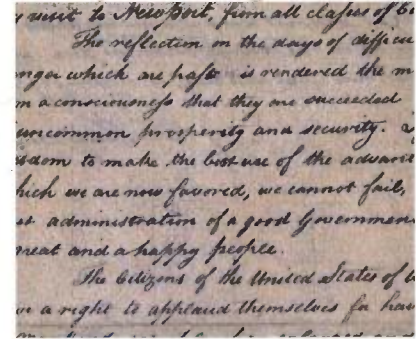 visit to Newport, from all claſses of
The reflection on the days of difficu
nger which are paſt is rendered the m
m a consciousneſs that they are succeeded
uncommon prosperity and security.
isdom to make the best use of the advant
hich we are now favored, we cannot fail,
st administration of a good Governmen
reat and a happy people.
The Citizens of the United States of
a right to applaud themselves for hav